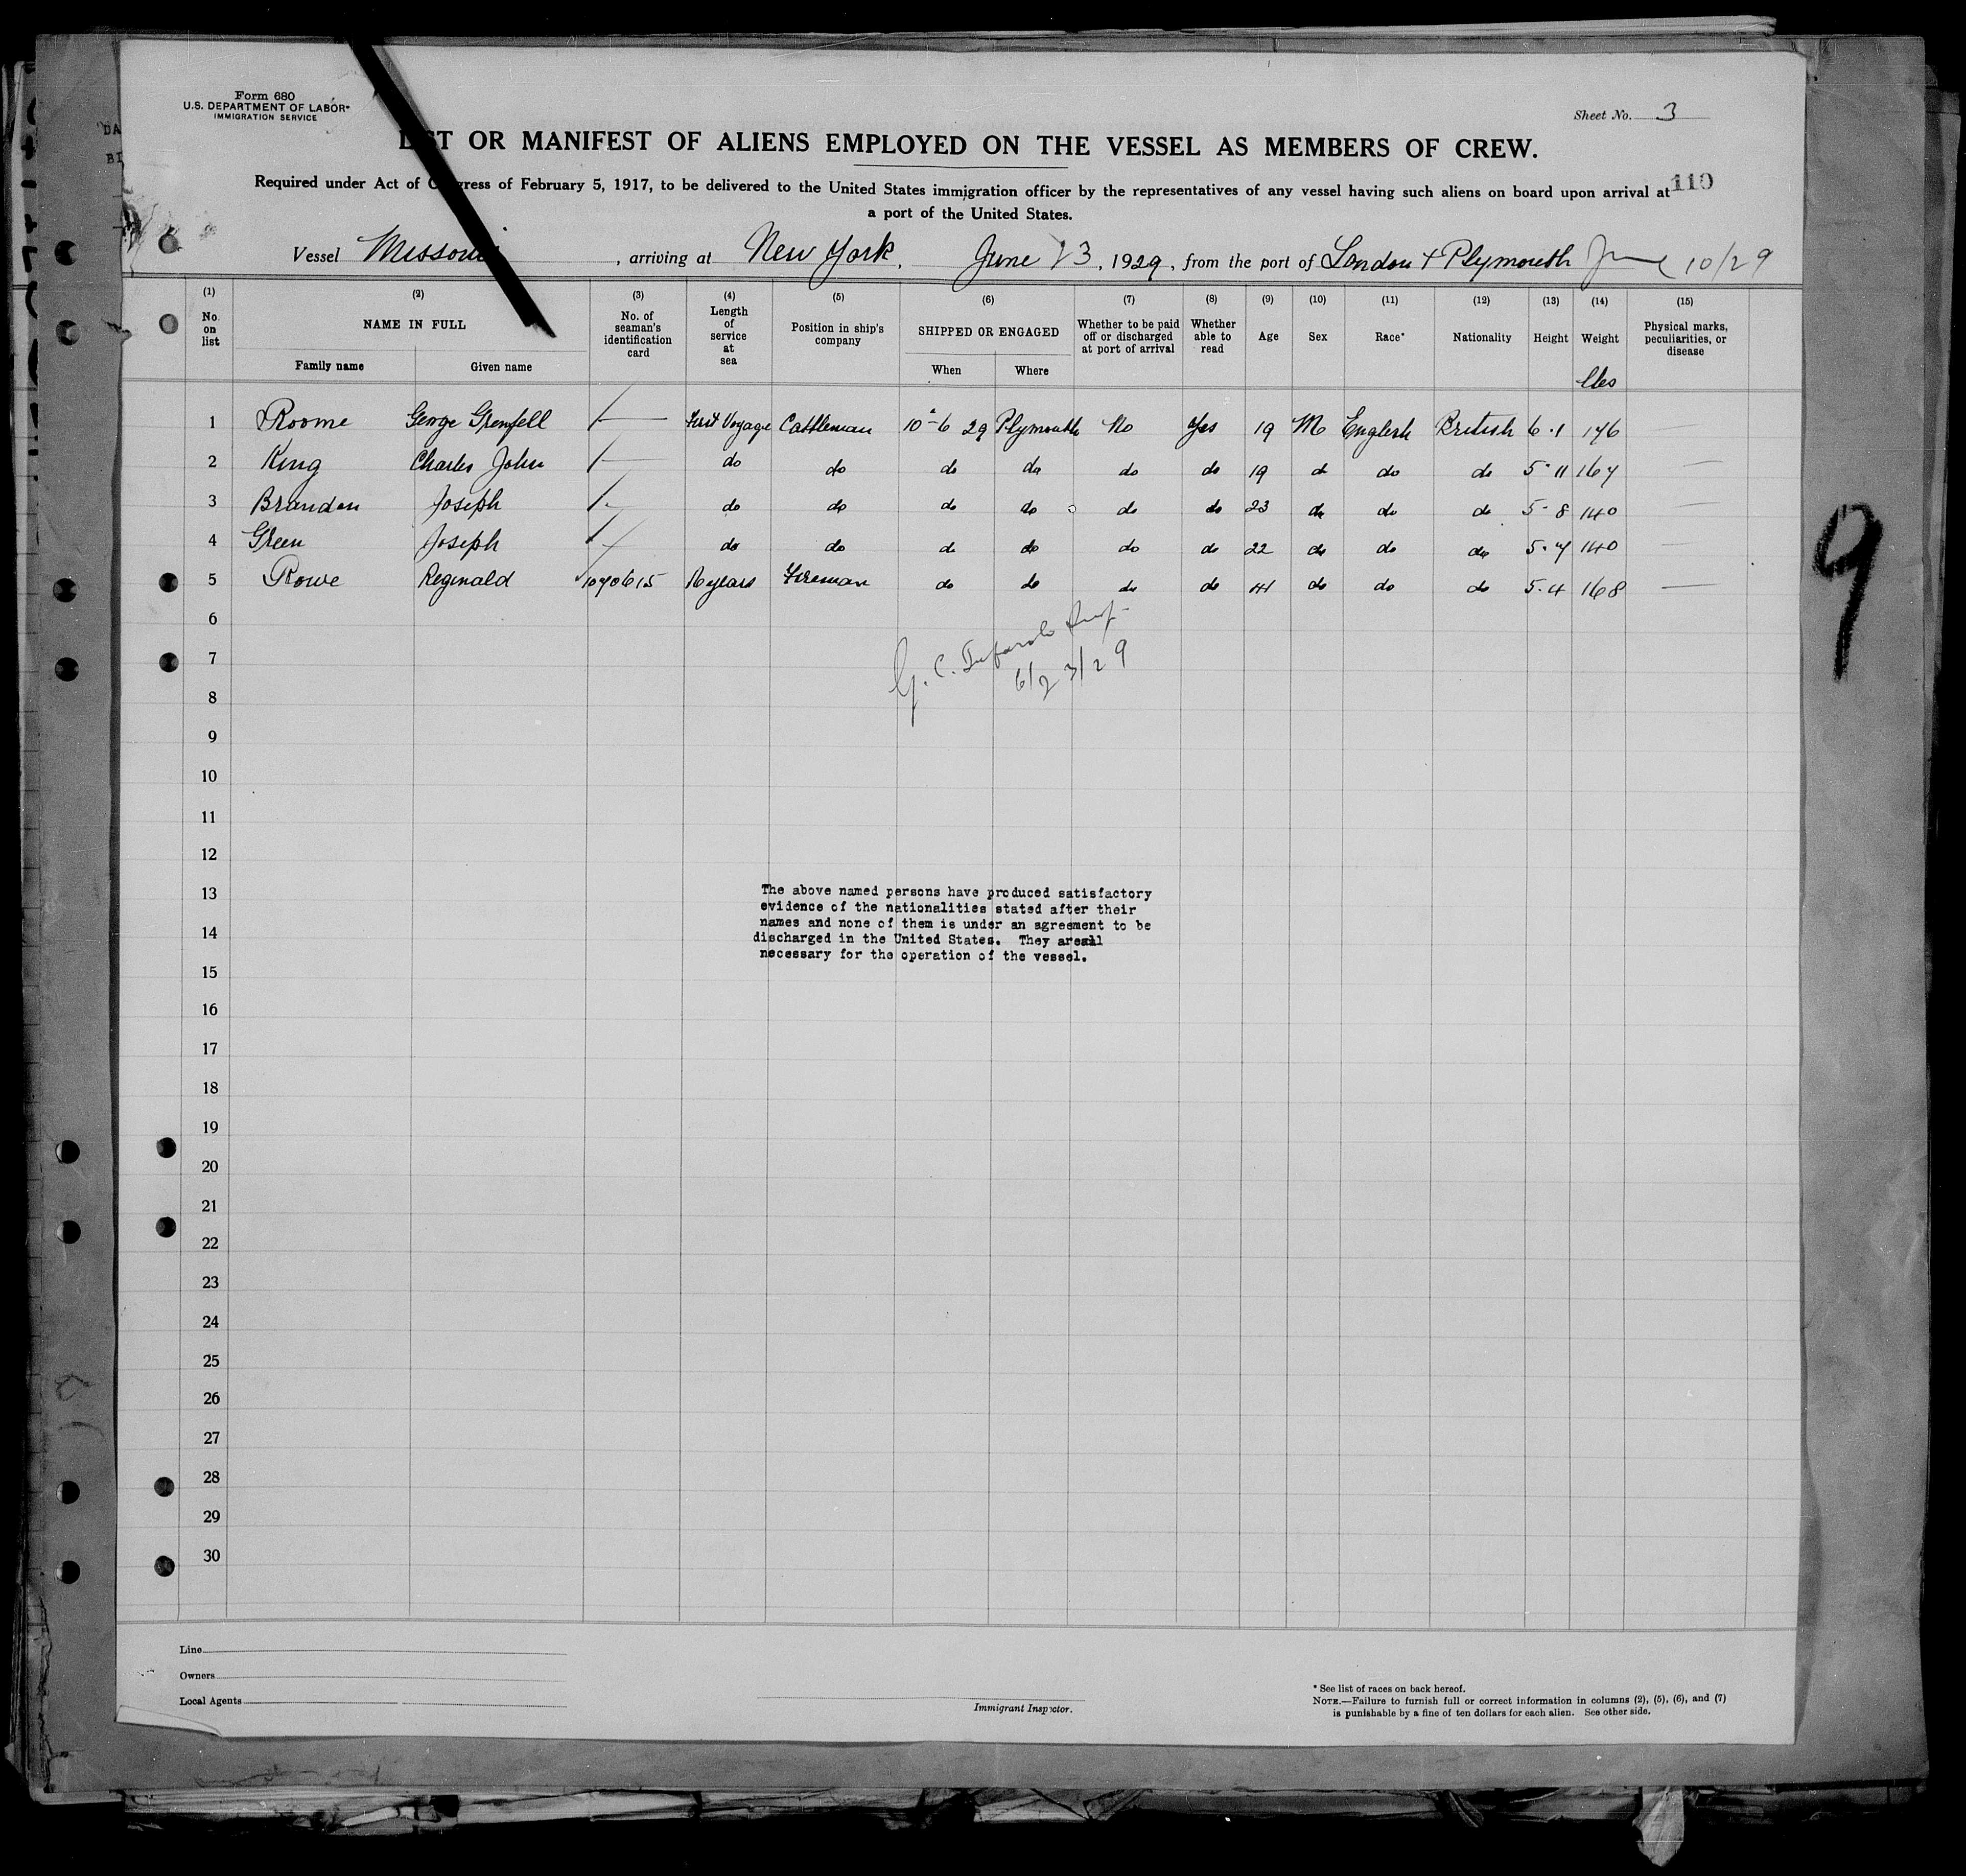 Form 680
U.S. DEPARTMENT OF LABOR
IMMIGRATION SERVICE
Sheet No. 3
LIST OR MANIFEST OF ALIENS EMPLOYED ON THE VESSEL AS MEMBERS OF CREW.
Required under Act of Congress of February 5, 1917, to be delivered to the United States immigration officer by the representatives of any vessel having such aliens on board upon arrival at
110
a port of the United States.
Vessel Missouri, arriving at New York, June 23, 1929, from the port of London & Plymouth June 10/29
(1) (2) (3) (4) (5) (6) (7) (8) (9) (10) (11) (12) (13) (14) (15)
No. on list
NAME IN FULL
Family name
Given name
No. of seaman's identification card
Length of service at sea
Position in ship's company
SHIPPED OR ENGAGED
When
Where
Whether to be paid off or discharged at port of arrival
Whether able to read
Age
Sex
Race*
Nationality
Height
Weight
lbs
Physical marks, peculiarities, or disease
1 Roome George Grenfell — First Voyage Cattleman 10-6 29 Plymouth No Yes 19 M English British 6.1 176
2 King Charles John — do do do do do do 19 do do do 5.11 167 —
3 Brandon Joseph - do do do do do do 23 do do do 5.8 140 —
4 Green Joseph - do do do do do do 22 do do do 5.7 140 —
5 Rowe Reginald 1070615 16 years Fireman do do do do 41 do do do 5.4 168 —
6
G. C.
7
6/23/29
8
9
10
11
12
13
The above named persons have produced satisfactory
evidence of the nationalities stated after their
names and none of them is under an agreement to be
14
discharged in the United States. They areall
necessary for the operation of the vessel.
15
16
17
18
19
20
21
22
23
24
25
26
27
28
29
30
9
Line
Owners
Local Agents
Immigrant Inspector.
* See list of races on back hereof.
NOTE.—Failure to furnish full or correct information in columns (2), (5), (6), and (7)
is punishable by a fine of ten dollars for each alien. See other side.